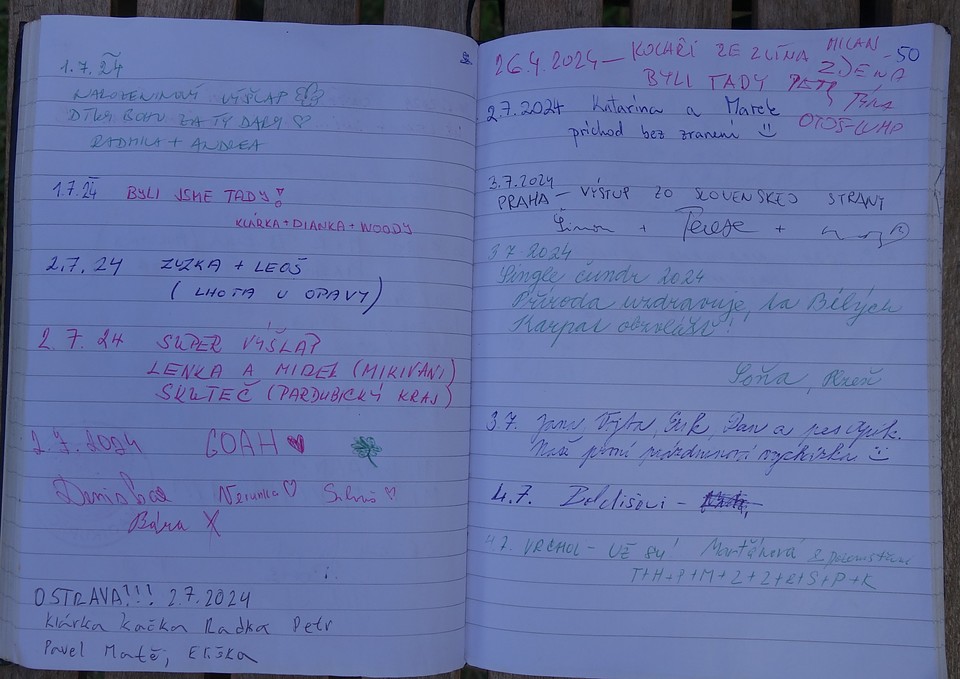 1.7.24
NAROZENINOVÝ VÝŠLAP
DÍKY BOHU ZA TY DARY ♡
RADMILA + ANDREA
1.7.24 BYLI JSME TADY!
KLÁRKA + DIANKA + WOODY
2.7.24 ZUZKA + LEOŠ
( LHOTA U OPAVY )
2.7.24 SUPER VÝŠLAP
LENKA A MIREL (MIKIVANI)
SKUTEČ (PARDUBICKÝ KRAJ)
2.7.2024 GOAH ♥
Bára X
OSTRAVA!!! 2.7.2024
Klárka Kačka Radka Petr
Pavel Matě; Eliška
26.4.2024 – KOLAŘI ZE ZLÍNA MILAN -50
BYLI TADY PETR ZDENA
2.7.2024 Katarína a Marek
príchod bez zranení
3.7.2024
PRAHA – VÝSTUP ZO SLOVENSKEJ STRANY
Šimon + +
3.7.2024
Single čundr 2024
Příroda uzdravuje, ta Bílých
Karpat obzvlášť!
Soňa, Plzeň
3.7. Jana, Dan a pes
Naše první prázdninová vycházka
4.7.
4.7. VRCHOL – UŽ 84!
T+H+P+M+Z+Z+R+S+P+K